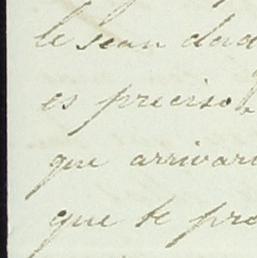 le sean dad
es preciso
que arrivar
que te pro